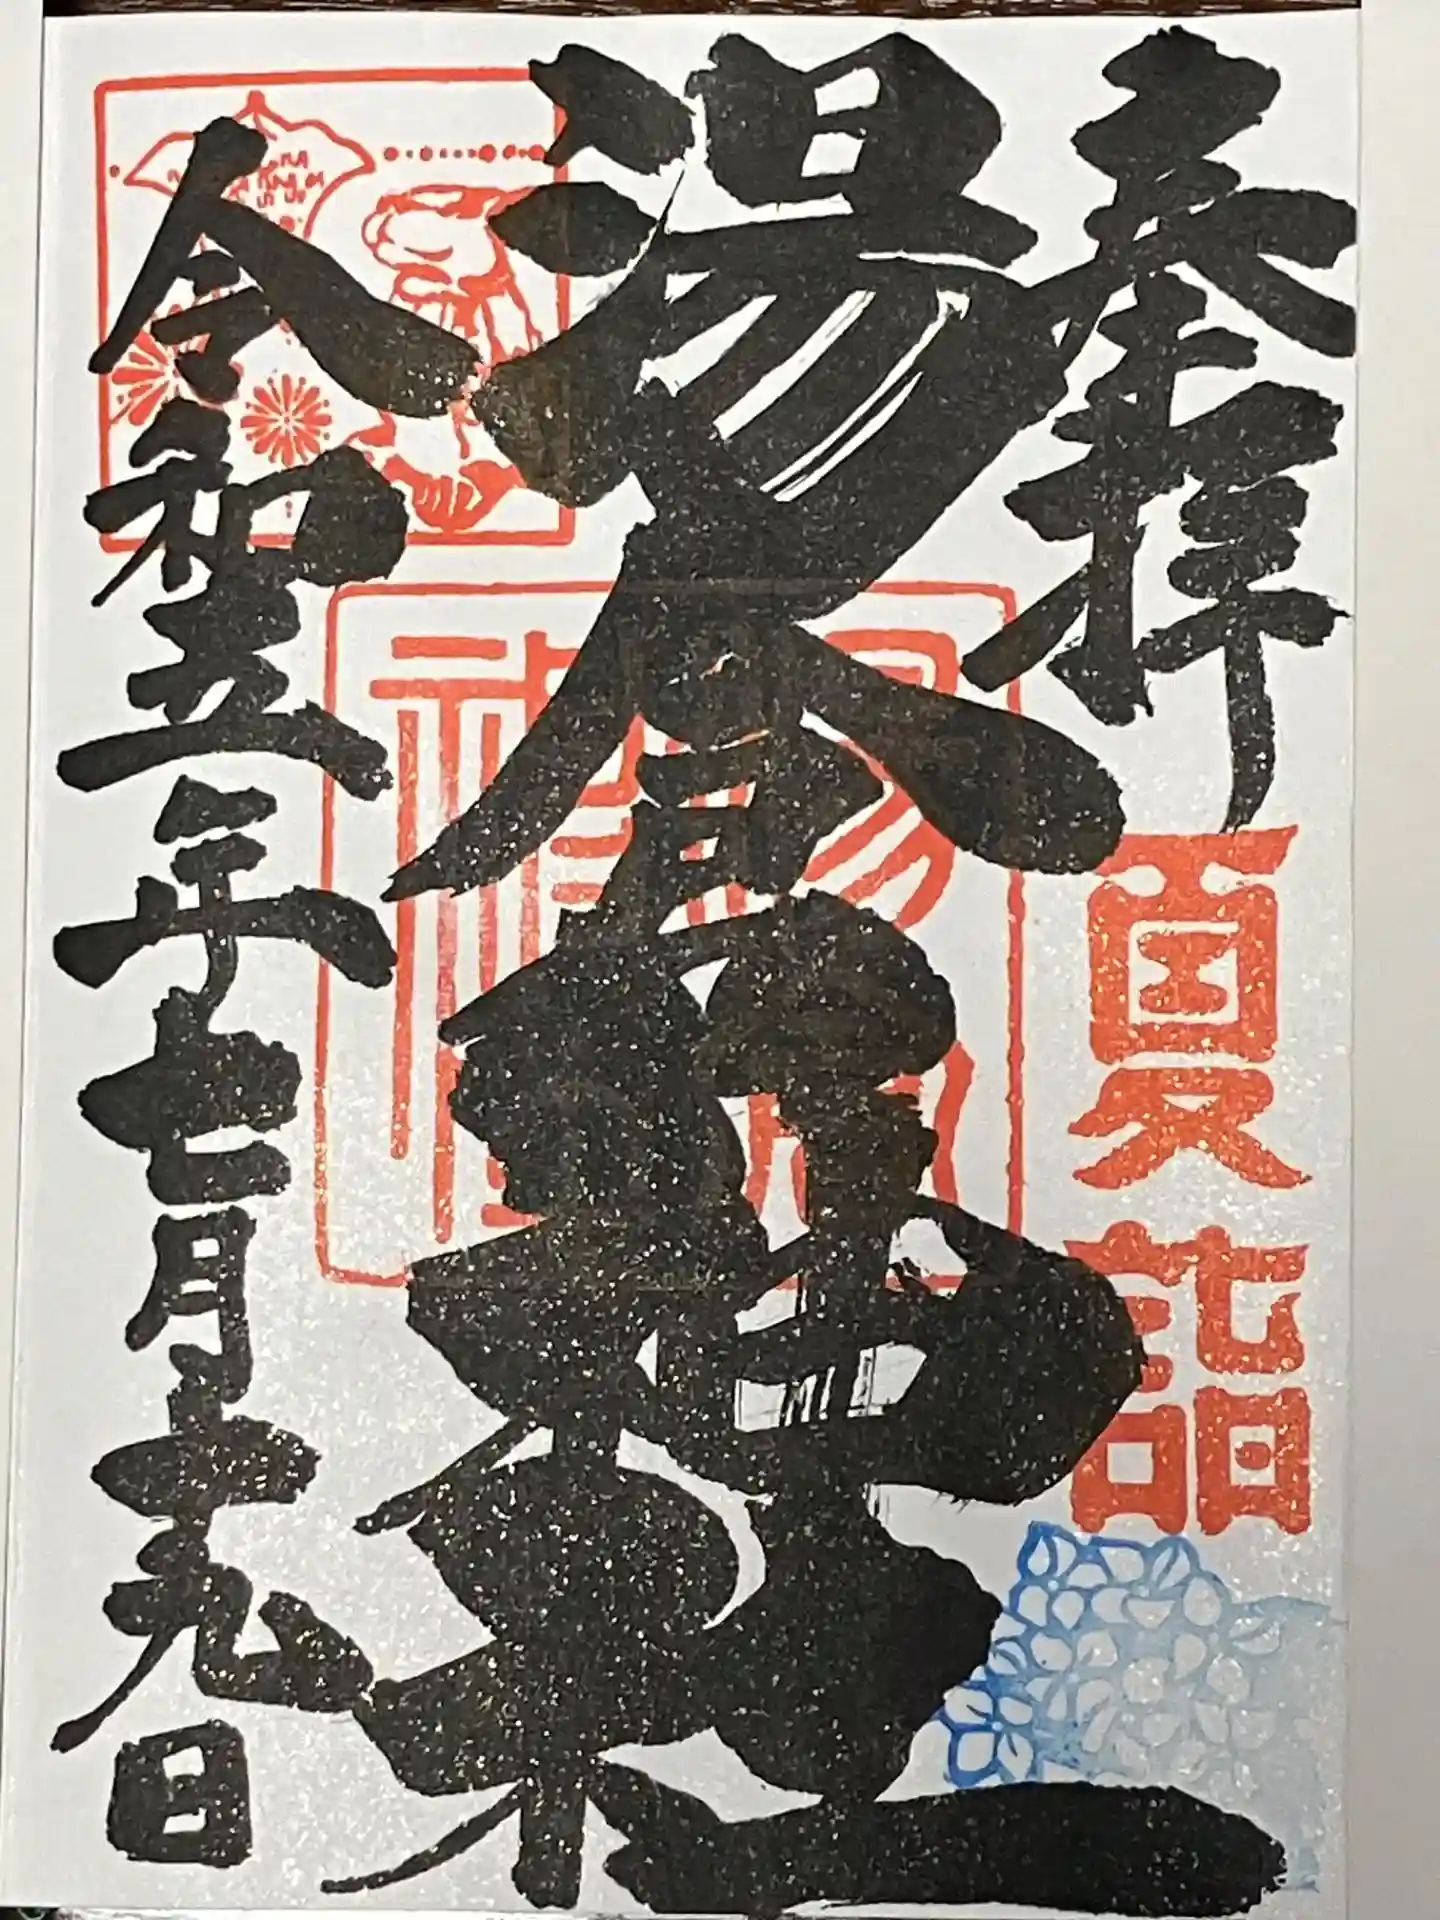 奉拝
夏詣
湯倉神社
令和五年七月十九日